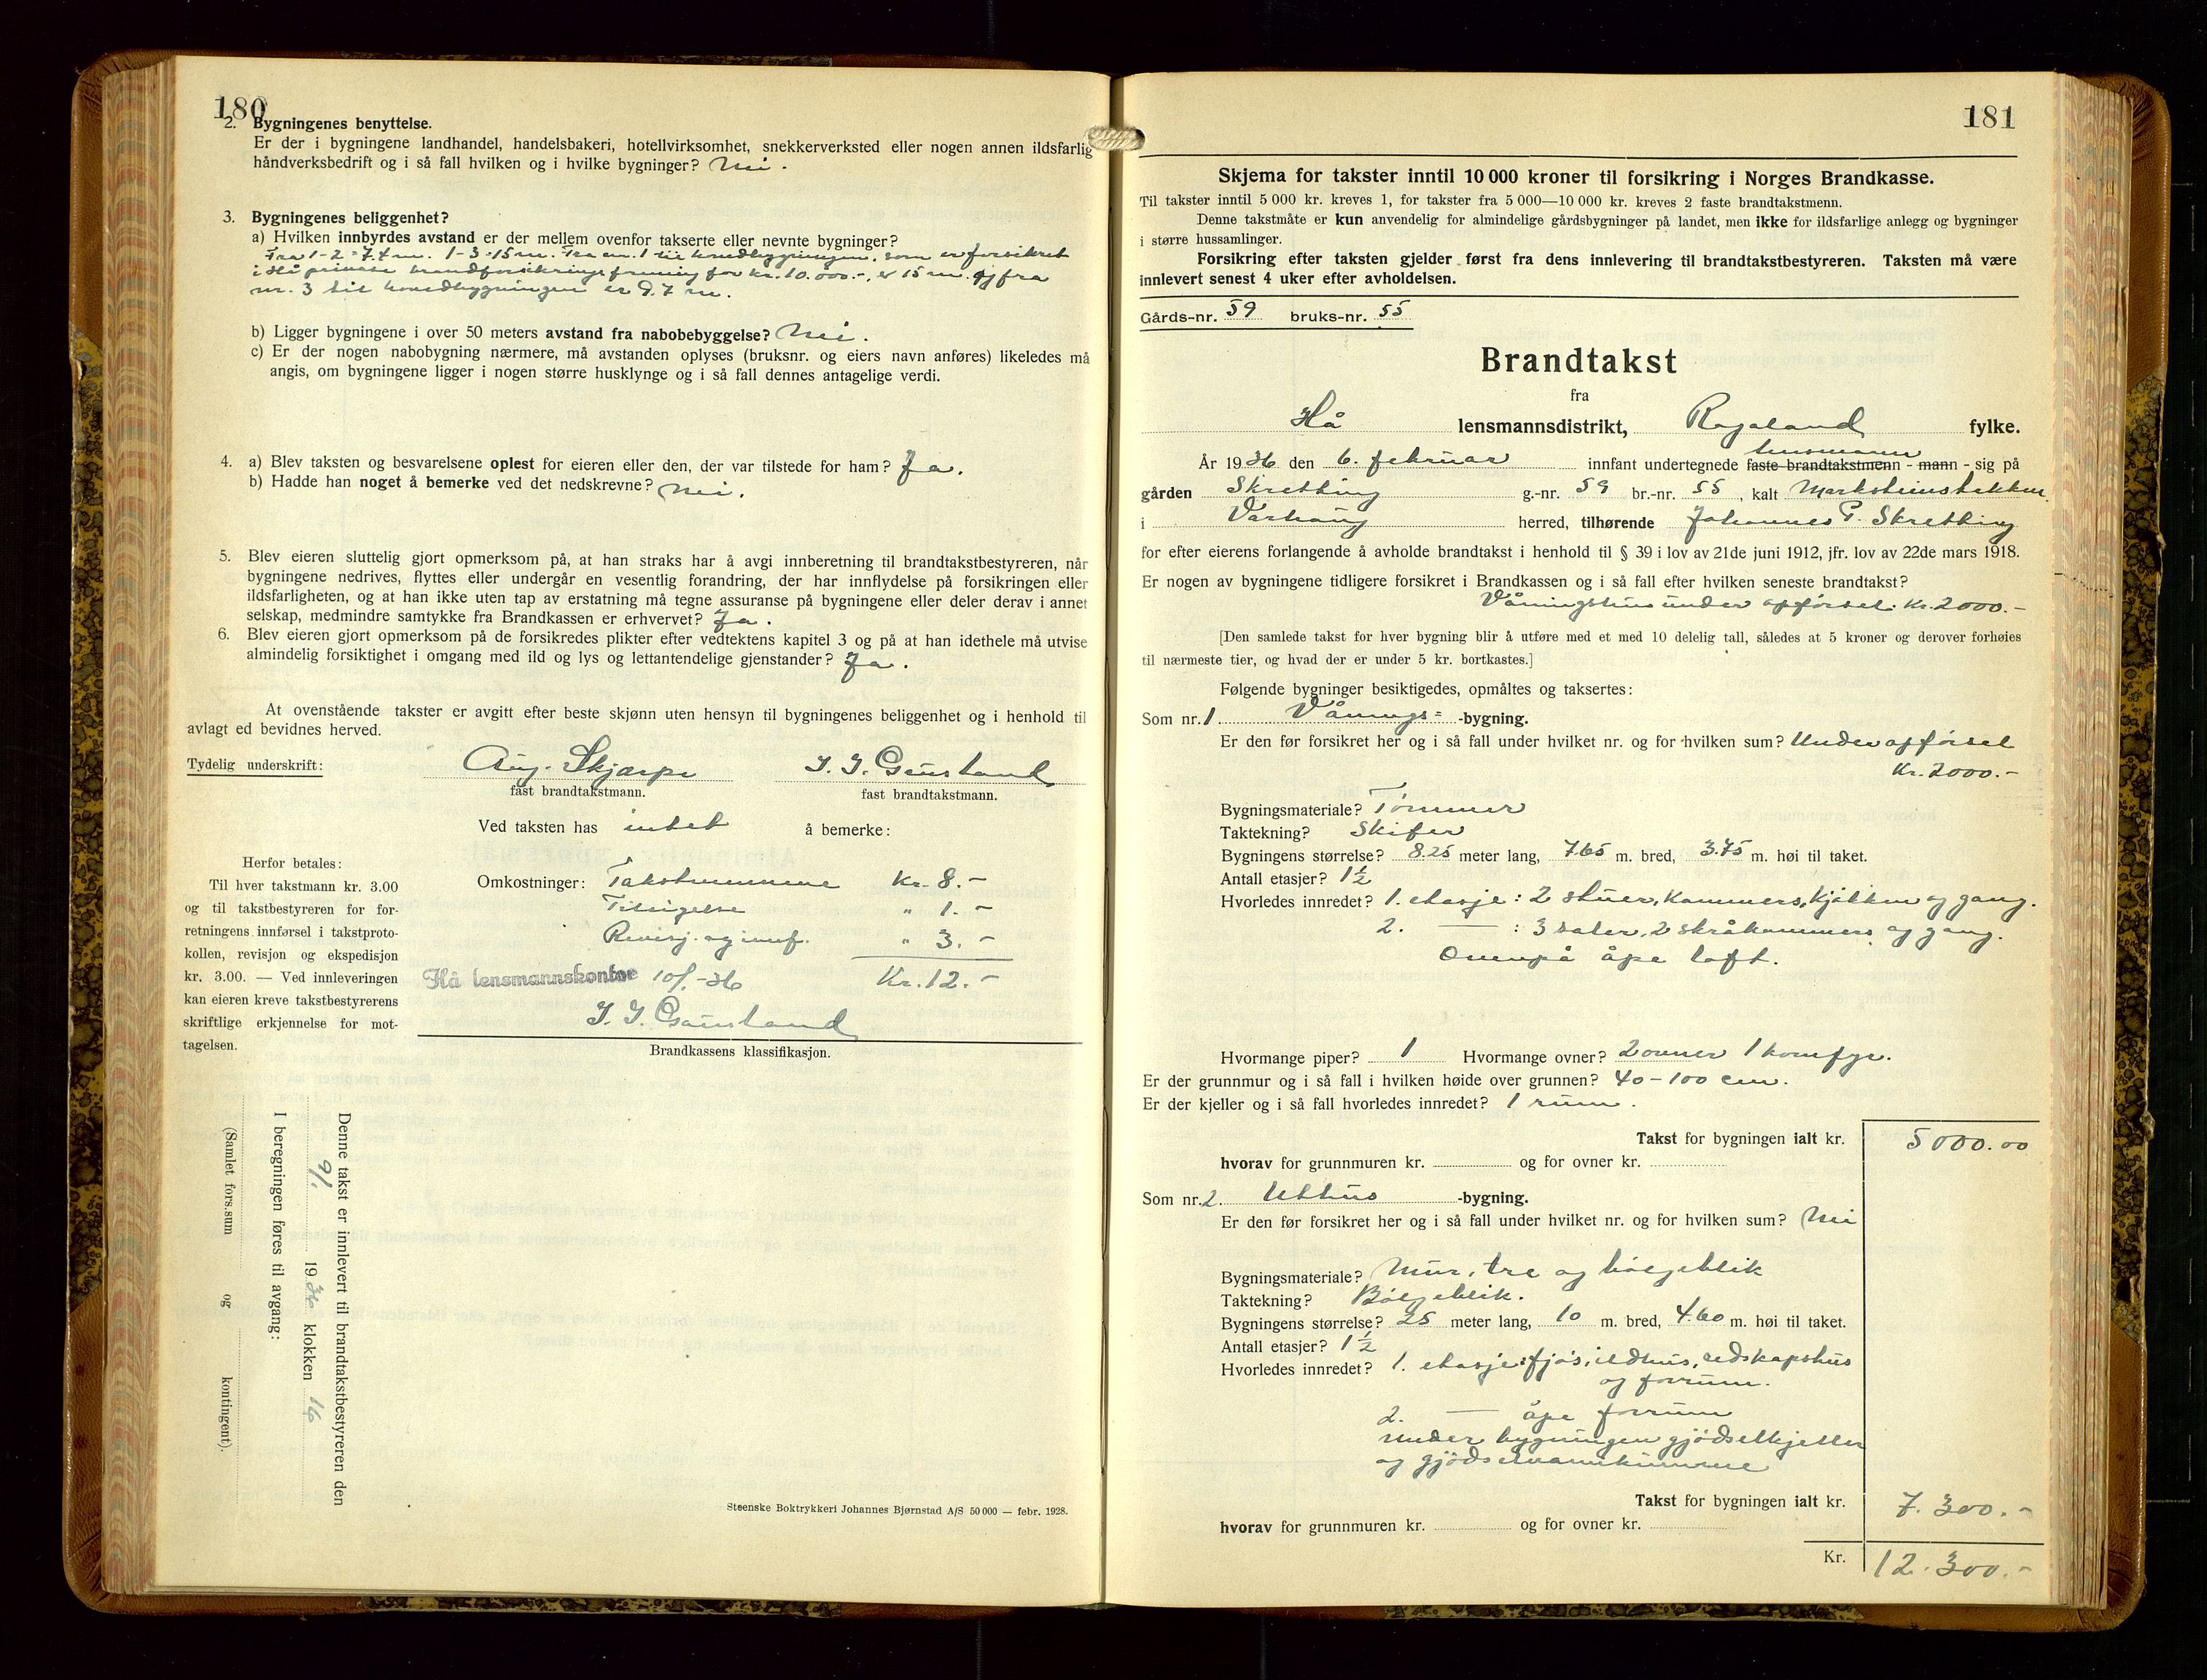 180
2. Bygningenes benyttelse.
Er der i bygningene landhandel, handelsbakeri, hotellvirksomhet, snekkerverksted eller nogen annen ildsfarlig
håndverksbedrift og i så fall hvilken og i hvilke bygninger? Nei.
3. Bygningenes beliggenhet?
a) Hvilken innbyrdes avstand er der mellem ovenfor takserte eller nevnte bygninger?
Fra 1-2 = 7.7 m. 1-3 = 15 m. Fra nr. 1 til hovedbygningen, som er forsikret
i Hå private brandforsikringsforening for kr. 10.000.-, er 15 m. og fra
nr. 3 til hovedbygningen er 9.7 m.
b) Ligger bygningene i over 50 meters avstand fra nabobebyggelse? Nei.
c) Er der nogen nabobygning nærmere, må avstanden oplyses (bruksnr. og eiers navn anføres) likeledes må
angis, om bygningene ligger i nogen større husklynge og i så fall dennes antagelige verdi.
4. a) Blev taksten og besvarelsene oplest for eieren eller den, der var tilstede for ham? Ja.
b) Hadde han noget å bemerke ved det nedskrevne? Nei.
5. Blev eieren sluttelig gjort opmerksom på, at han straks har å avgi innberetning til brandtakstbestyreren, når
bygningene nedrives, flyttes eller undergår en vesentlig forandring, der har innflydelse på forsikringen eller
ildsfarligheten, og at han ikke uten tap av erstatning må tegne assuranse på bygningene eller deler derav i annet
selskap, medmindre samtykke fra Brandkassen er erhvervet? Ja.
6. Blev eieren gjort opmerksom på de forsikredes plikter efter vedtektens kapitel 3 og på at han idethele må utvise
almindelig forsiktighet i omgang med ild og lys og lettantendelige gjenstander? Ja.
At ovenstående takster er avgitt efter beste skjønn uten hensyn til bygningenes beliggenhet og i henhold til
avlagt ed bevidnes herved.
Tydelig underskrift: Aug. Skjærpe J. J. Grausland
fast brandtakstmann. fast brandtakstmann.
Ved taksten has intet å bemerke:
Herfor betales:
Til hver takstmann kr. 3.00
og til takstbestyreren for for-
retningens innførsel i takstproto-
kollen, revisjon og ekspedisjon
kr. 3.00. — Ved innleveringen
kan eieren kreve takstbestyrerens
skriftlige erkjennelse for mot-
tagelsen.
Omkostninger: Takstmennene Kr. 8.-
Tilsigelse " 1.-
Revisj. og innf. " 3.-
Hå lensmannskontor 10/1-36 Kr. 12.-
J. J. Grausland
Brandkassens klassifikasjon.
Denne takst er innlevert til brandtakstbestyreren den
9/1 1936 klokken 16
I beregningen føres til avgang:
(Samlet fors.sum og kontingent).
Steenske Boktrykkeri Johannes Bjørnstad A/S 50 000 — febr. 1928.
181
Skjema for takster inntil 10 000 kroner til forsikring i Norges Brandkasse.
Til takster inntil 5 000 kr. kreves 1, for takster fra 5 000—10 000 kr. kreves 2 faste brandtakstmenn.
Denne takstmåte er kun anvendelig for almindelige gårdsbygninger på landet, men ikke for ildsfarlige anlegg og bygninger
i større hussamlinger.
Forsikring efter taksten gjelder først fra dens innlevering til brandtakstbestyreren. Taksten må være
innlevert senest 4 uker efter avholdelsen.
Gårds-nr. 59 bruks-nr. 55
Brandtakst
fra
Hå lensmannsdistrikt, Rogaland fylke.
lensmann
År 1936 den 6. februar innfant undertegnede faste brandtakstmenn - mann - sig på
gården Skretting g.-nr. 59 br.-nr. 55, kalt Marksteinsbakken
i Varhaug herred, tilhørende Johannes P. Skretting
for efter eierens forlangende å avholde brandtakst i henhold til § 39 i lov av 21de juni 1912, jfr. lov av 22de mars 1918.
Er nogen av bygningene tidligere forsikret i Brandkassen og i så fall efter hvilken seneste brandtakst?
Våningshus under opførsel: kr. 2000.-
[Den samlede takst for hver bygning blir å utføre med et med 10 delelig tall, således at 5 kroner og derover forhøies
til nærmeste tier, og hvad der er under 5 kr. bortkastes.]
Følgende bygninger besiktigedes, opmåltes og taksertes:
Som nr. 1. Vånings= -bygning.
Er den før forsikret her og i så fall under hvilket nr. og for hvilken sum? Under opførsel
Kr. 2000.-
Bygningsmateriale? Tømmer
Taktekning? Skifer
Bygningens størrelse? 8.25 meter lang, 7.65 m. bred, 3.75 m. høi til taket.
Antall etasjer? 1½
Hvorledes innredet? 1. etasje: 2 stuer, kammers, kjøkken og gang.
2. — : 3 saler, 2 skråkammers og gang.
Ovenpå åpe loft.
Hvormange piper? 1 Hvormange ovner? 2 ovner 1 komfyr.
Er der grunnmur og i så fall i hvilken høide over grunnen? 40-100 cm.
Er der kjeller og i så fall hvorledes innredet? 1 rum.
Takst for bygningen ialt kr. 5000.00
hvorav for grunnmuren kr. og for ovner kr.
Som nr. 2. Uthus -bygning.
Er den før forsikret her og i så fall under hvilket nr. og for hvilken sum? Nei
Bygningsmateriale? Mur, tre og bølgeblik
Taktekning? Bølgeblik.
Bygningens størrelse? 25 meter lang, 10 m. bred, 4.60 m. høi til taket.
Antall etasjer? 1½
Hvorledes innredet? 1. etasje: fjøs, ildhus, redskapshus
og forrum.
2. — åpe forrum
Under bygningen gjødselkjeller
og gjødselvannkumme
Takst for bygningen ialt kr. 7.300.-
hvorav for grunnmuren kr. og for ovner kr.
Kr. 12.300.-